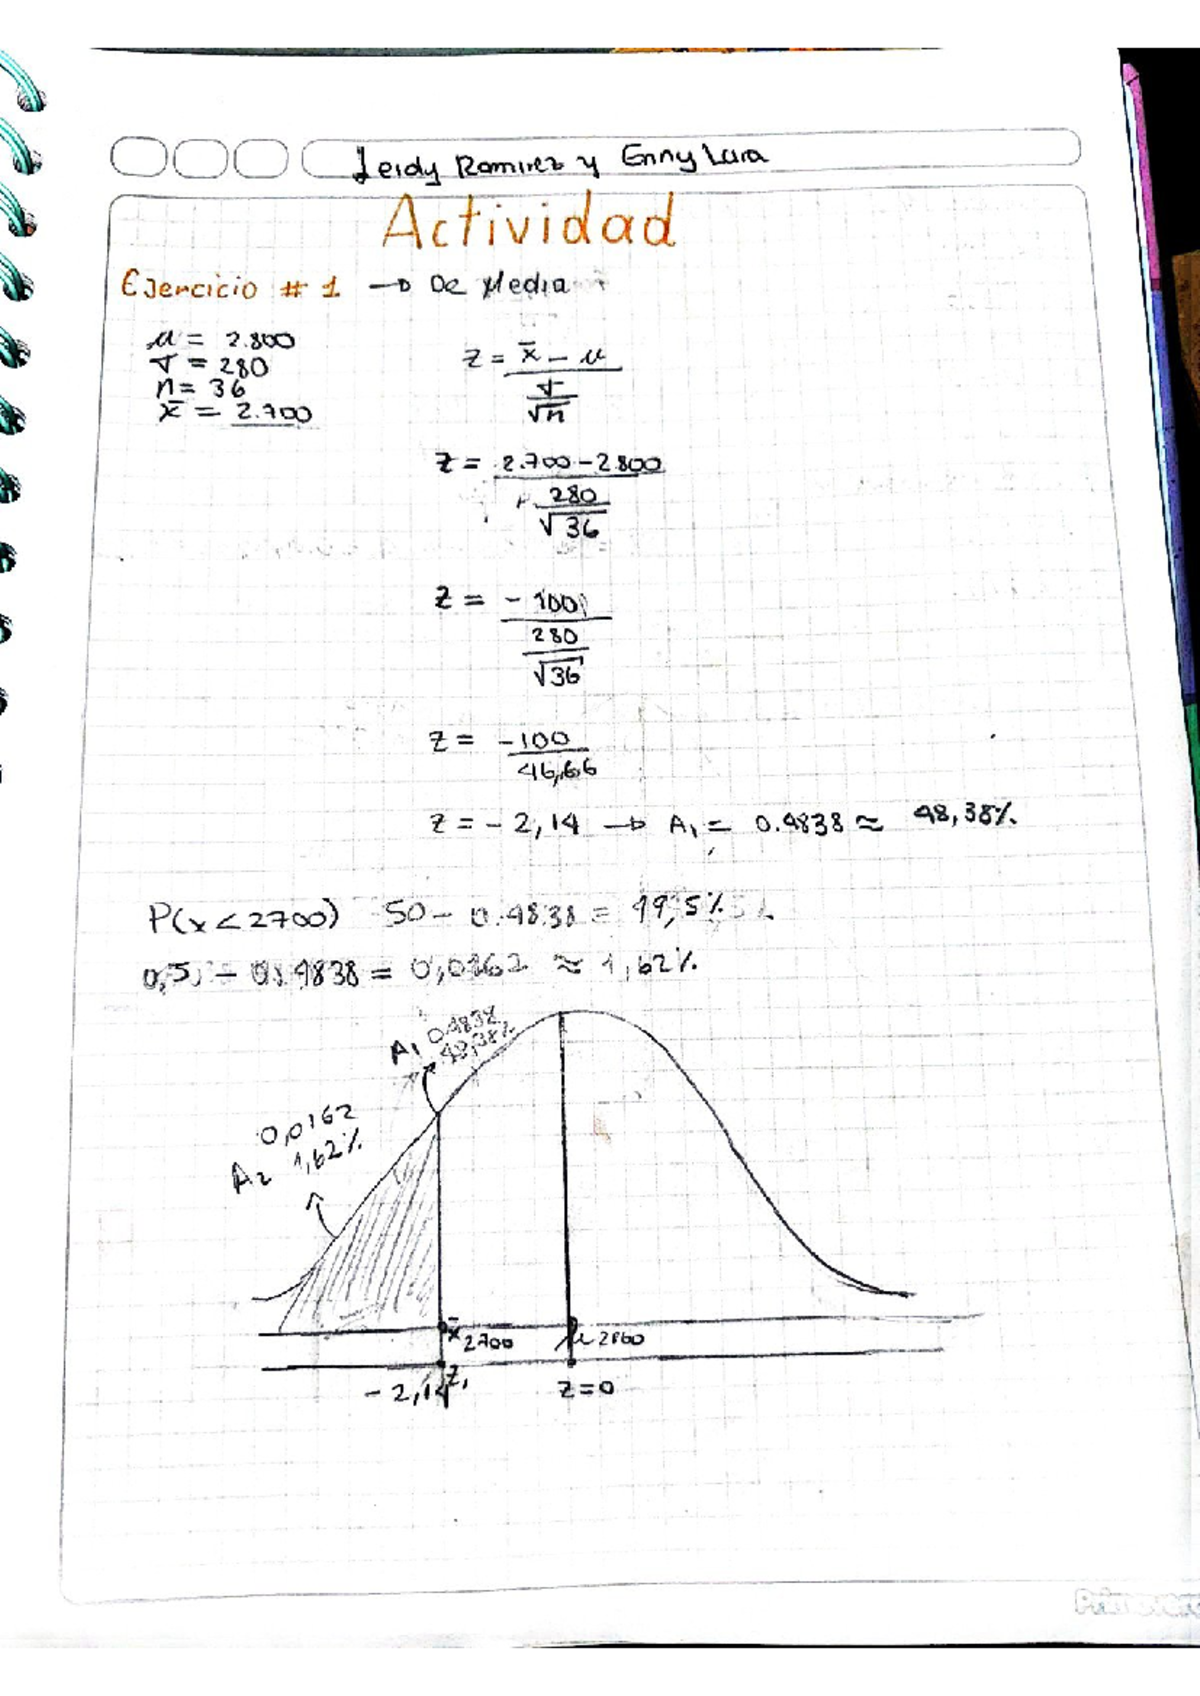 Leidy Ramirez y Enny Lara
Actividad
Ejercicio # 1 → De Media
μ = 2.800
σ = 280
n = 36
x̄ = 2.700
Z = x̄ - μ
σ
√n
Z = 2.700 - 2800
280
√36
Z = - 100
280
√36
Z = -100
46,66
Z = - 2,14 → A₁ = 0.4838 ≈ 48,38%
P(x < 2700) 50 - 0.4838 = 49,5%
0,5 - 0.4838 = 0,0162 ≈ 1,62%
A₁ 0.4838
48,38%
0,0162
A₂ 1,62%
x̄ 2700 μ 2800
- 2,14 Z₁ Z = 0
Primavera